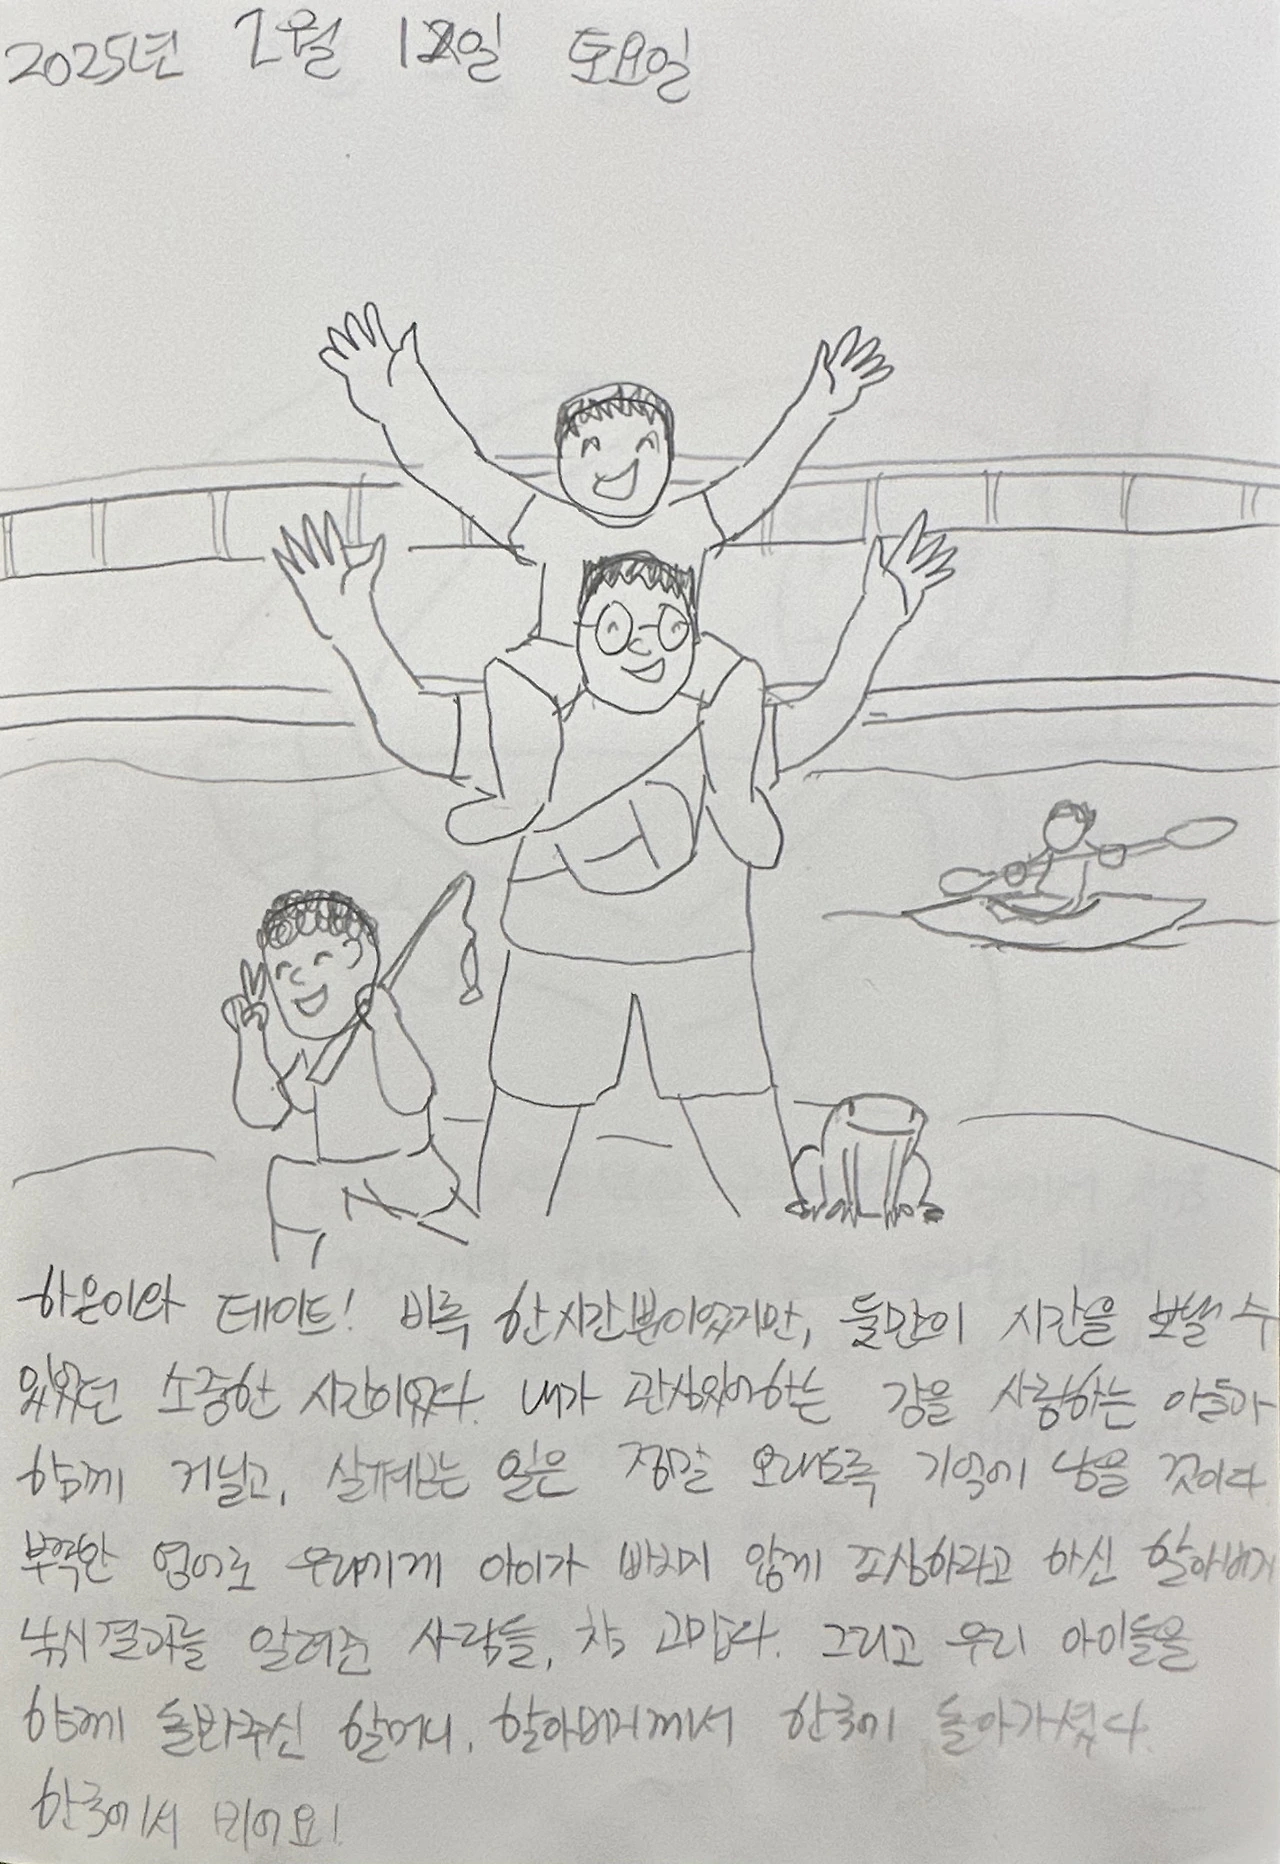 2025년 7월 12일 토요일
하온이와 데이트! 비록 한시간뿐이었지만, 둘만의 시간을 보낼 수
있었던 소중한 시간이었다. 내가 관심있어하는 강을 사랑하는 아들과
함께 거닐고, 살펴보는 일은 정말 오래도록 기억에 남을 것이다.
부족한 영어로 우리에게 아이가 빠지지 않게 조심하라고 하신 할아버지
낚시결과를 알려준 사람들, 참 고맙다. 그리고 우리 아이들을
함께 돌봐주신 할머니, 할아버지께서 한국에 돌아가셨다.
한국에서 뵈어요!